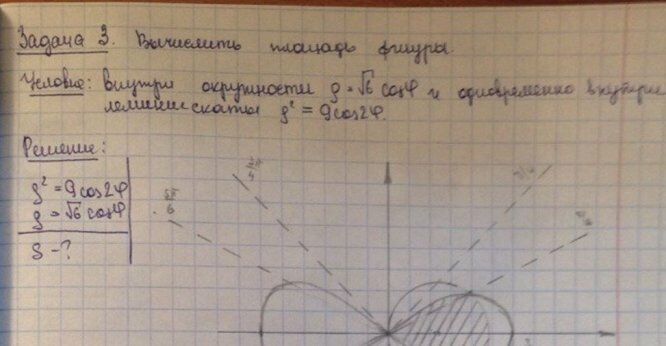 Задача 3. Вычислить площадь фигуры.
Условие: внутри окружности ρ = √6 cosφ и одновременно внутри
лемнискаты ρ² = 9cos2φ.
Решение:
ρ² = 9cos2φ
ρ = √6 cosφ
S - ?
5π/6
3π/4
π/4
π/6